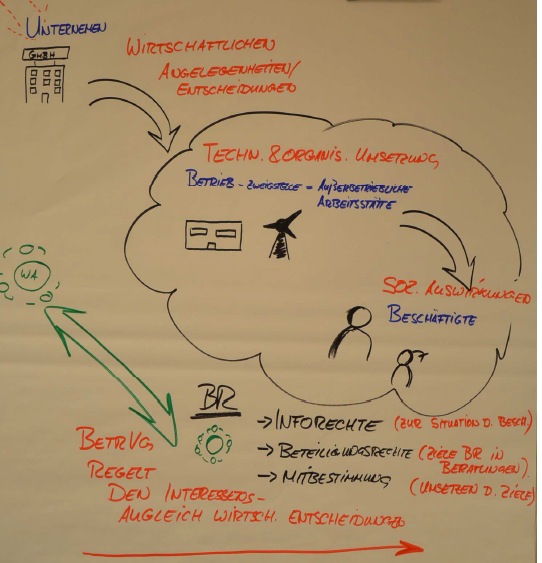 UNTERNEHMEN
GMBH
WIRTSCHAFTLICHEN
ANGELEGENHEITEN/
ENTSCHEIDUNGEN
TECHN. & ORGANIS. UMSETZUNG
BETRIEB - ZWEIGSTELLE - AUßERBETRIEBLICHE
ARBEITSSTÄTTE
SOZ. AUSWIRKUNGEN
BESCHÄFTIGTE
WA
BR
→ INFORECHTE (ZUR SITUATION D. BESCH.)
→ BETEILIGUNGSRECHTE (ZIELE BR IN
BERATUNGEN).
→ MITBESTIMMUNG (UMSETZEN D. ZIELE)
BETRVG
REGELT
DEN INTERESSENS-
AUGLEICH WIRTSCH. ENTSCHEIDUNGEN